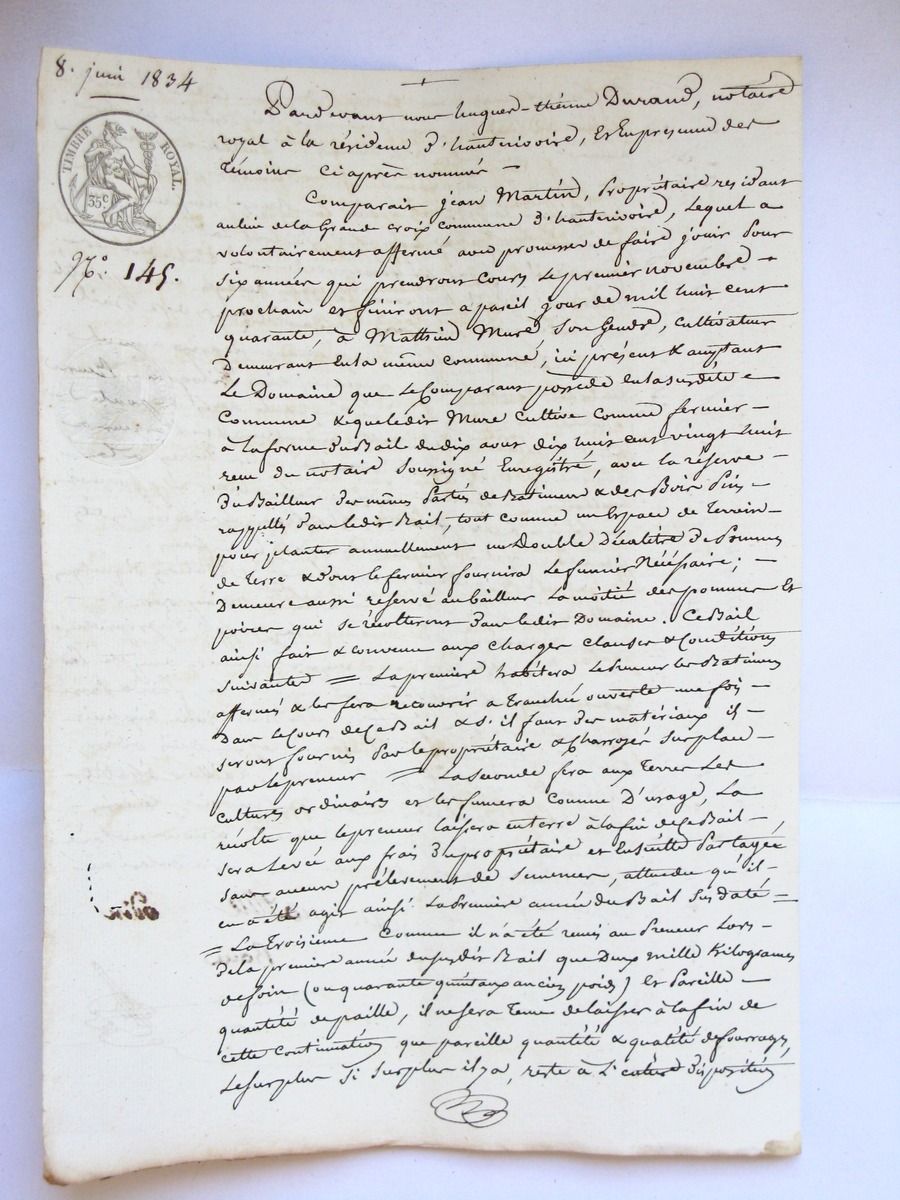 8. juin 1834
TIMBRE ROYAL.
35 c
N.° 145.
Pardevant nous hugues-étienne Durand, notaire
royal à la résidence d'hauterivoire, Et En présence des
Témoins Ci après nommés —
Comparait jean Martin, Propriétaire residant
au lieu de la Grande Croix commune d'hauterivoire, Lequel a
volontairement affermé avec promesse de faire jouir pour
six années qui prendront Cours Le premier novembre —
prochain et finiront a pareil jour de mil huit cent
quarante, à Mathieu Mure Son Gendre, Cultivateur
Demeurant En la même Commune, ici présent & acceptant
Le Domaine que Le Comparant possède en la susdite —
Commune & que ledit Mure Cultive Comme fermier —
à la forme du Bail du dix aout dix huit cent vingt huit
recu du notaire Soussigné Enregistré, avec la réserve —
Du Bailleur Des mêmes Parties de Batiment & des Bois Pins —
rappellés Dans ledit Bail, tout comme un Espace de Terrein —
pour planter annuellement un Double Décalitre De Pommes
de Terre & dont le fermier fournira Le fumier Nécéssaire ; —
Demeure aussi réservé au bailleur La moitié des pommes Et
poires qui se récolteront Dans ledit Domaine. Ce Bail
ainsi fait & convenu aux Charges Clauses & Conditions
suivantes = La première habitera Le Preneur les Batimens
affermés & les fera recouvrir a Tranchée ouverte une fois —
Dans le Cours de Ce Bail & s'il faut Des matériaux il —
seront fournis Par le propriétaire & Charroyés Sur place —
par le preneur = La Seconde fera aux Terres Les
Cultures ordinaires et les fumera Comme D'usage, La
récolte que le preneur laissera en terre à la fin de Ce Bail —
Sera Levée aux frais Du propriétaire et Ensuite Partagée
sans aucun prélevement de semences, attendu qu'il —
en a été agit ainsi La Première année du Bail Sus Daté =
= La Troisieme Comme il n'a été remis au Preneur Lors —
De la première année dudit Bail que Deux mille Kilogrames
de foin (ou quarante quintaux ancien poids) Et Pareille —
quantité de paille, il ne sera Tenu de laisser à la fin de
cette Continuation que pareille quantité & qualité de fourrages,
Le Surplus Si Surplus il y a, reste à L'entière disposition